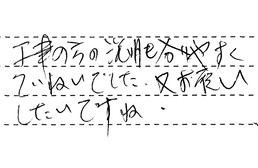 工事の方の説明も分りやすく
ていねいでした。又お願い
したいですね。